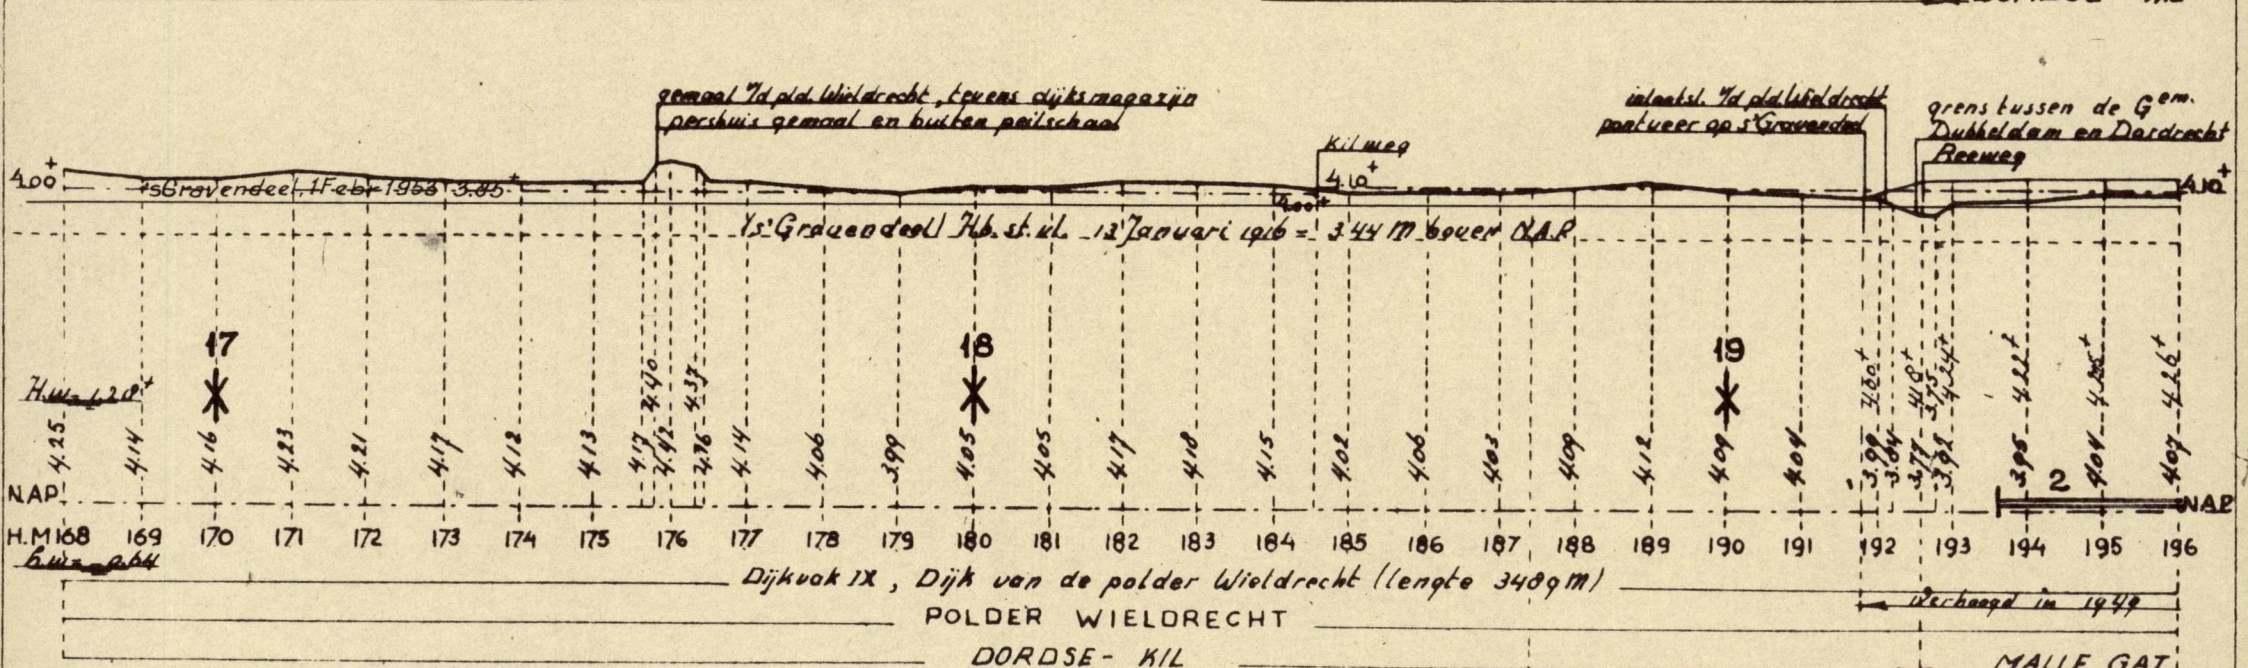 gemaal v/d pld. Wieldrecht, tevens dijksmagazijn
pershuis gemaal en buiten peilschaal
inlaatsl. v/d pld. Wieldrecht
pontveer op s'Gravendeel
grens tussen de Gem.
Dubbeldam en Dordrecht
Reeweg
Kilweg
4.00+
's Gravendeel, 1 Febr 1953 3.85+
4.10+
4.00+
4.10+
(s'Gravendeel) H.b. st. vl. 13 Januari 1916 = 3.44 m boven N.A.P.
17 18 19
H.w. = 1.20+
4.40 4.37 4.00+ 4.18+ 3.75 4.24+ 4.22+ 4.25+ 4.26+
4.25 4.14 4.16 4.23 4.21 4.17 4.12 4.13 4.17 4.42 4.14 4.06 3.99 4.05 4.05 4.17 4.18 4.15 4.02 4.06 4.03 4.09 4.12 4.09 4.04 3.99 3.84 3.77 3.92 3.95 4.04 4.07
2
N.A.P. N.A.P.
H.M 168 169 170 171 172 173 174 175 176 177 178 179 180 181 182 183 184 185 186 187 188 189 190 191 192 193 194 195 196
l.w. = 0.64
Dijkvak IX, Dijk van de polder Wieldrecht (lengte 3489 m)
verhoogd in 1949
POLDER WIELDRECHT
DORDSE - KIL
MALLE GAT